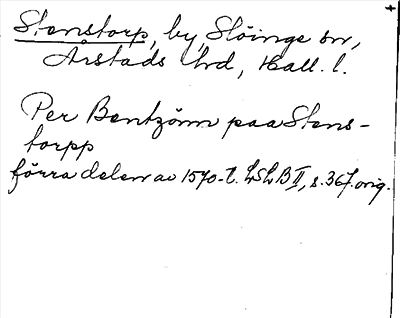 Stenstorp, by, Slöinge sn,
Årstads hd, Hall. l.
Per Bentzönn paa Stens-
torpp
förra delen av 1570-t. LSLB II, s. 367. orig.